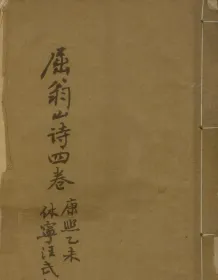 屈翁山诗四卷
康熙乙未
休寧汪氏